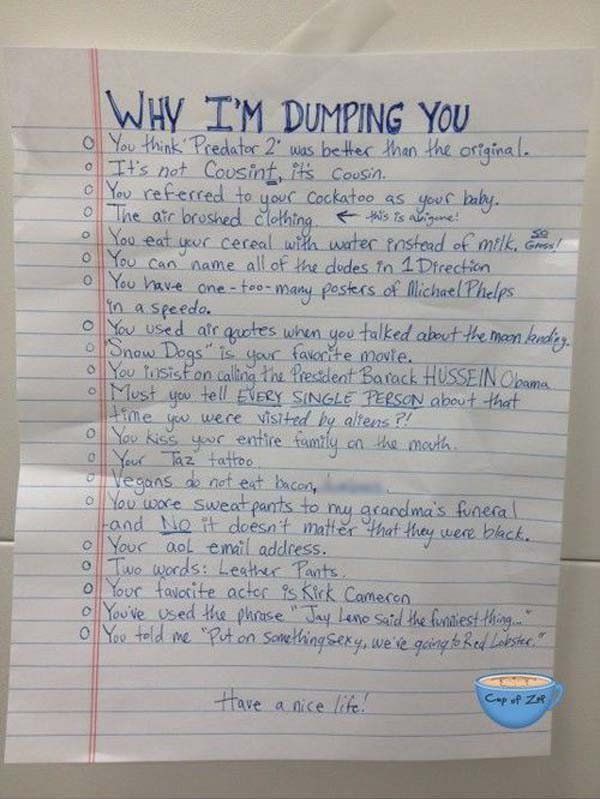 WHY I'M DUMPING YOU
You think 'Predator 2' was better than the original.
It's not Cousint, it's Cousin.
You referred to your cockatoo as your baby.
The air brushed clothing ← this is a biggone!
You eat your cereal with water instead of milk, SO Gross!
You can name all of the dudes in 1 Direction
You have one-too-many posters of Michael Phelps
in a speedo.
You used air quotes when you talked about the moon landing.
"Snow Dogs" is your favorite movie.
You insist on calling the President Barack HUSSEIN Obama
Must you tell EVERY SINGLE PERSON about that
time you were visited by aliens?!
You kiss your entire family on the mouth.
Your Taz tattoo
Vegans do not eat bacon,
You wore sweatpants to my grandma's funeral
and NO it doesn't matter that they were black.
Your aol email address.
Two words: Leather Pants.
Your favorite actor is Kirk Cameron
You've used the phrase "Jay Leno said the funniest thing..."
You told me "Put on something sexy, we're going to Red Lobster."
Have a nice life!
Cup of Zup